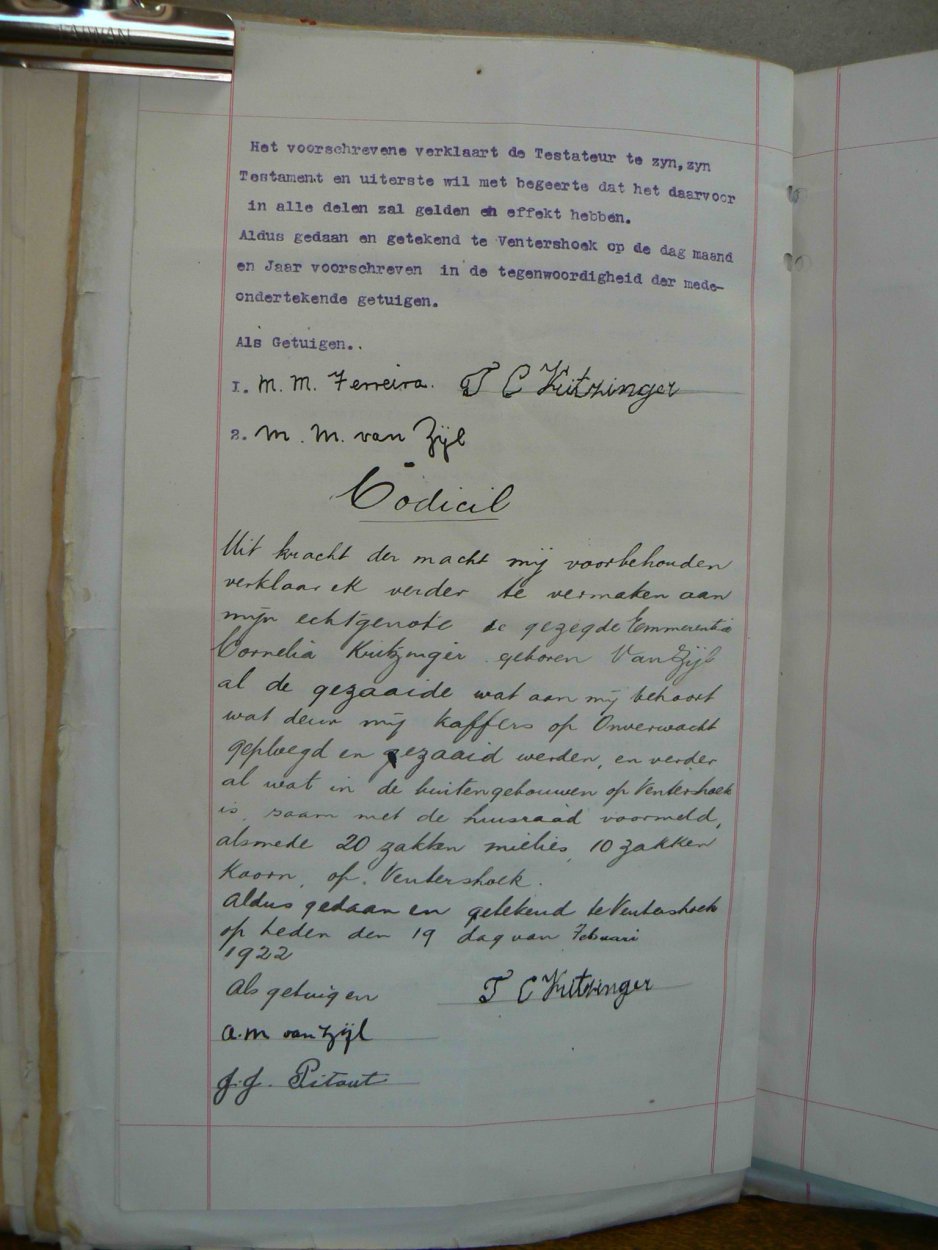 TAIWAN
Het voorschrevene verklaart de Testateur te zyn, zyn
Testament en uiterste wil met begeerte dat het daarvoor
in alle delen zal gelden en effekt hebben.
Aldus gedaan en getekend te Ventershoek op de dag maand
en Jaar voorschreven in de tegenwoordigheid der mede-
ondertekende getuigen.
Als Getuigen..
1. M. M. Ferreira. T C Kritzinger
2. M. M. van Zÿl
Codicil
Uit kracht der macht mij voorbehouden
verklaar ik verder te vermaken aan
mijn echtgenote de gezegde Emmerentia
Cornelia Kritzinger geboren Van Zÿl
al de gezaaide wat aan mij behoort
wat deur mij kaffers op Onverwacht
geploegd en gezaaid werden, en verder
al wat in de buitengebouwen op Ventershoek
is, saam met de huisraad voormeld,
alsmede 20 zakken mielies, 10 zakken
Koorn, op Ventershoek.
Aldus gedaan en getekend te Ventershoek
op heden den 19 dag van Februari
1922
Als getuigen T C Kritzinger
A. M van Zÿl
J. J. Pitout